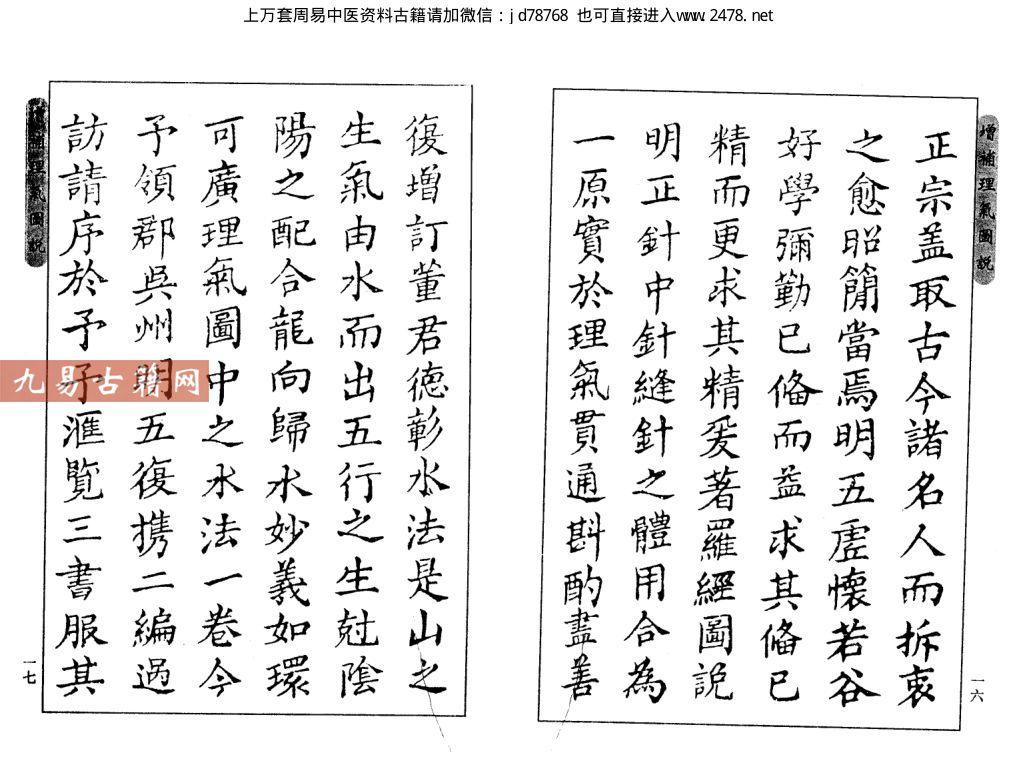 上万套周易中医资料古籍请加微信：jd78768 也可直接进入www.2478.net
增補理氣圖說
正宗盖取古今諸名人而拆衷
之愈昭簡當焉明五虛懷若谷
好學彌勤已俻而益求其俻已
精而更求其精爰著羅經圖說
明正針中針縫針之體用合為
一原實於理氣貫通斟酌盡善
一六
復增訂董君德彰水法是山之
生氣由水而出五行之生尅陰
陽之配合龍向歸水妙義如環
可廣理氣圖中之水法一卷今
予領郡吳州明五復携二編過
訪請序於予予滙覽三書服其
增補理氣圖說
一七
九易古籍网